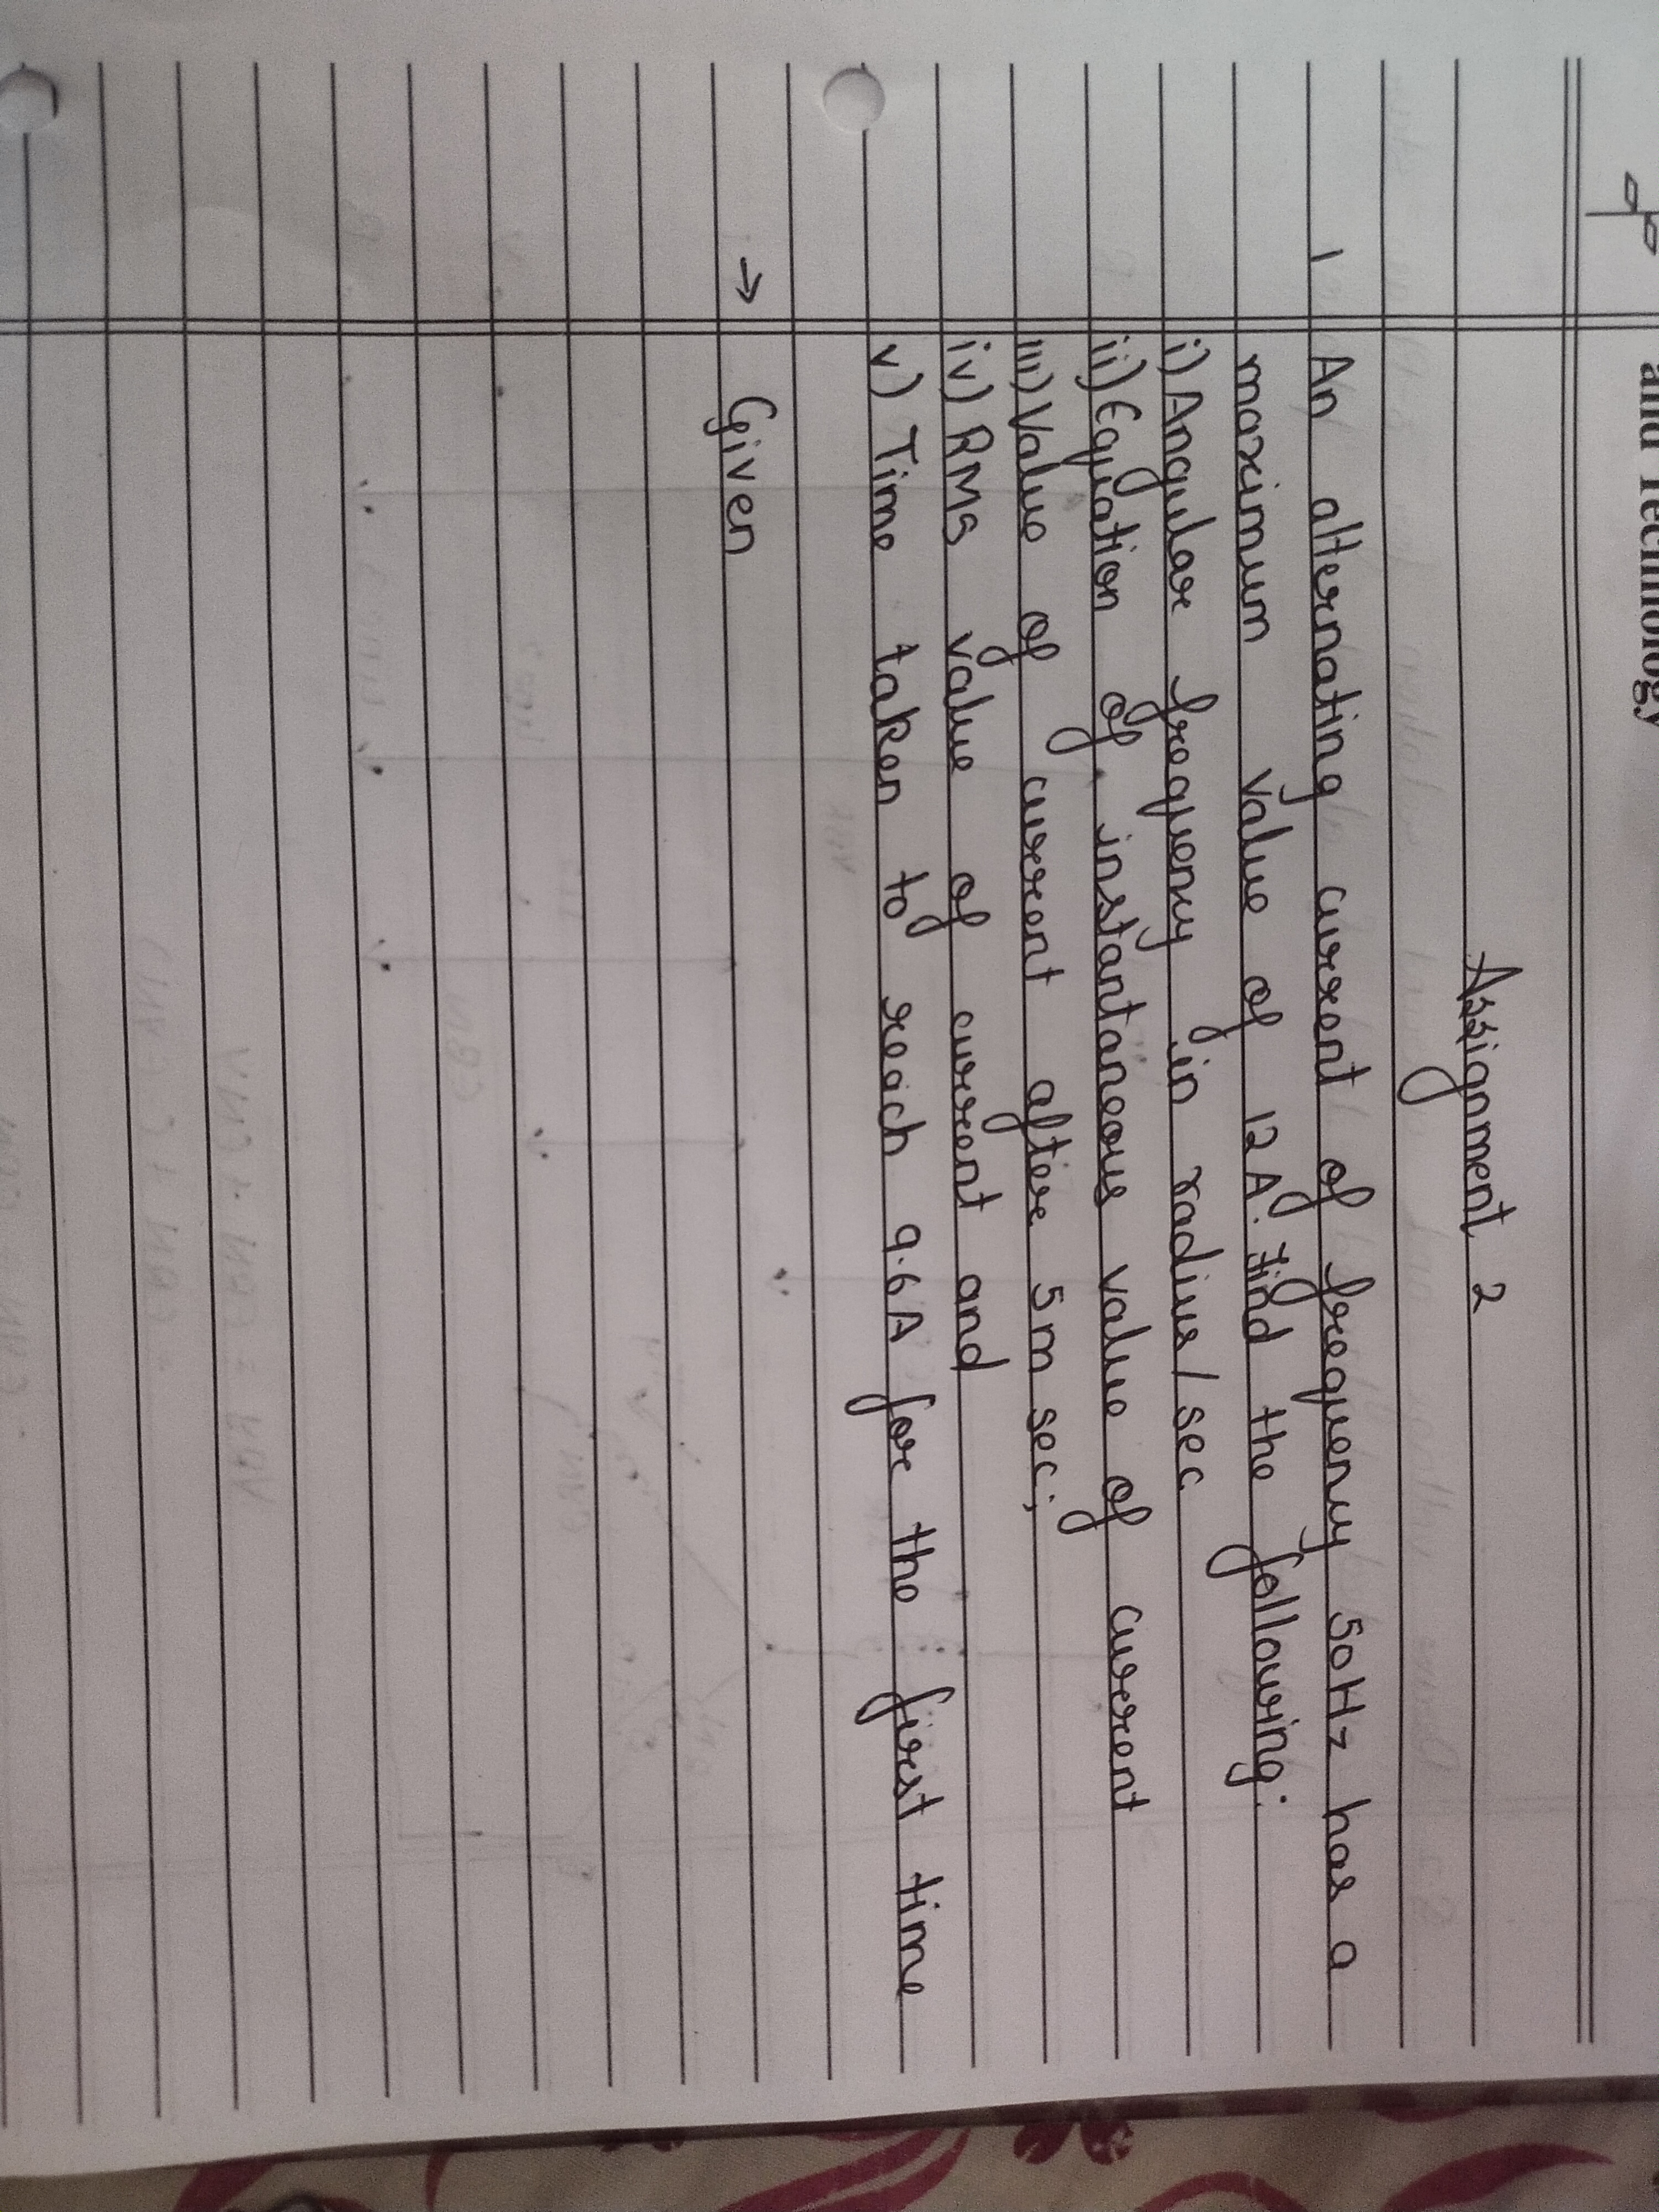 and Technology
Assignment 2
1 An alternating current of frequency 50Hz has a
maximum value of 12A. Find the following:
i) Angular frequency in radius/sec.
ii) Equation of instantaneous value of current
iii) Value of current after 5m sec;
iv) RMS value of current and
v) Time taken to reach 9.6A for the first time
→ Given